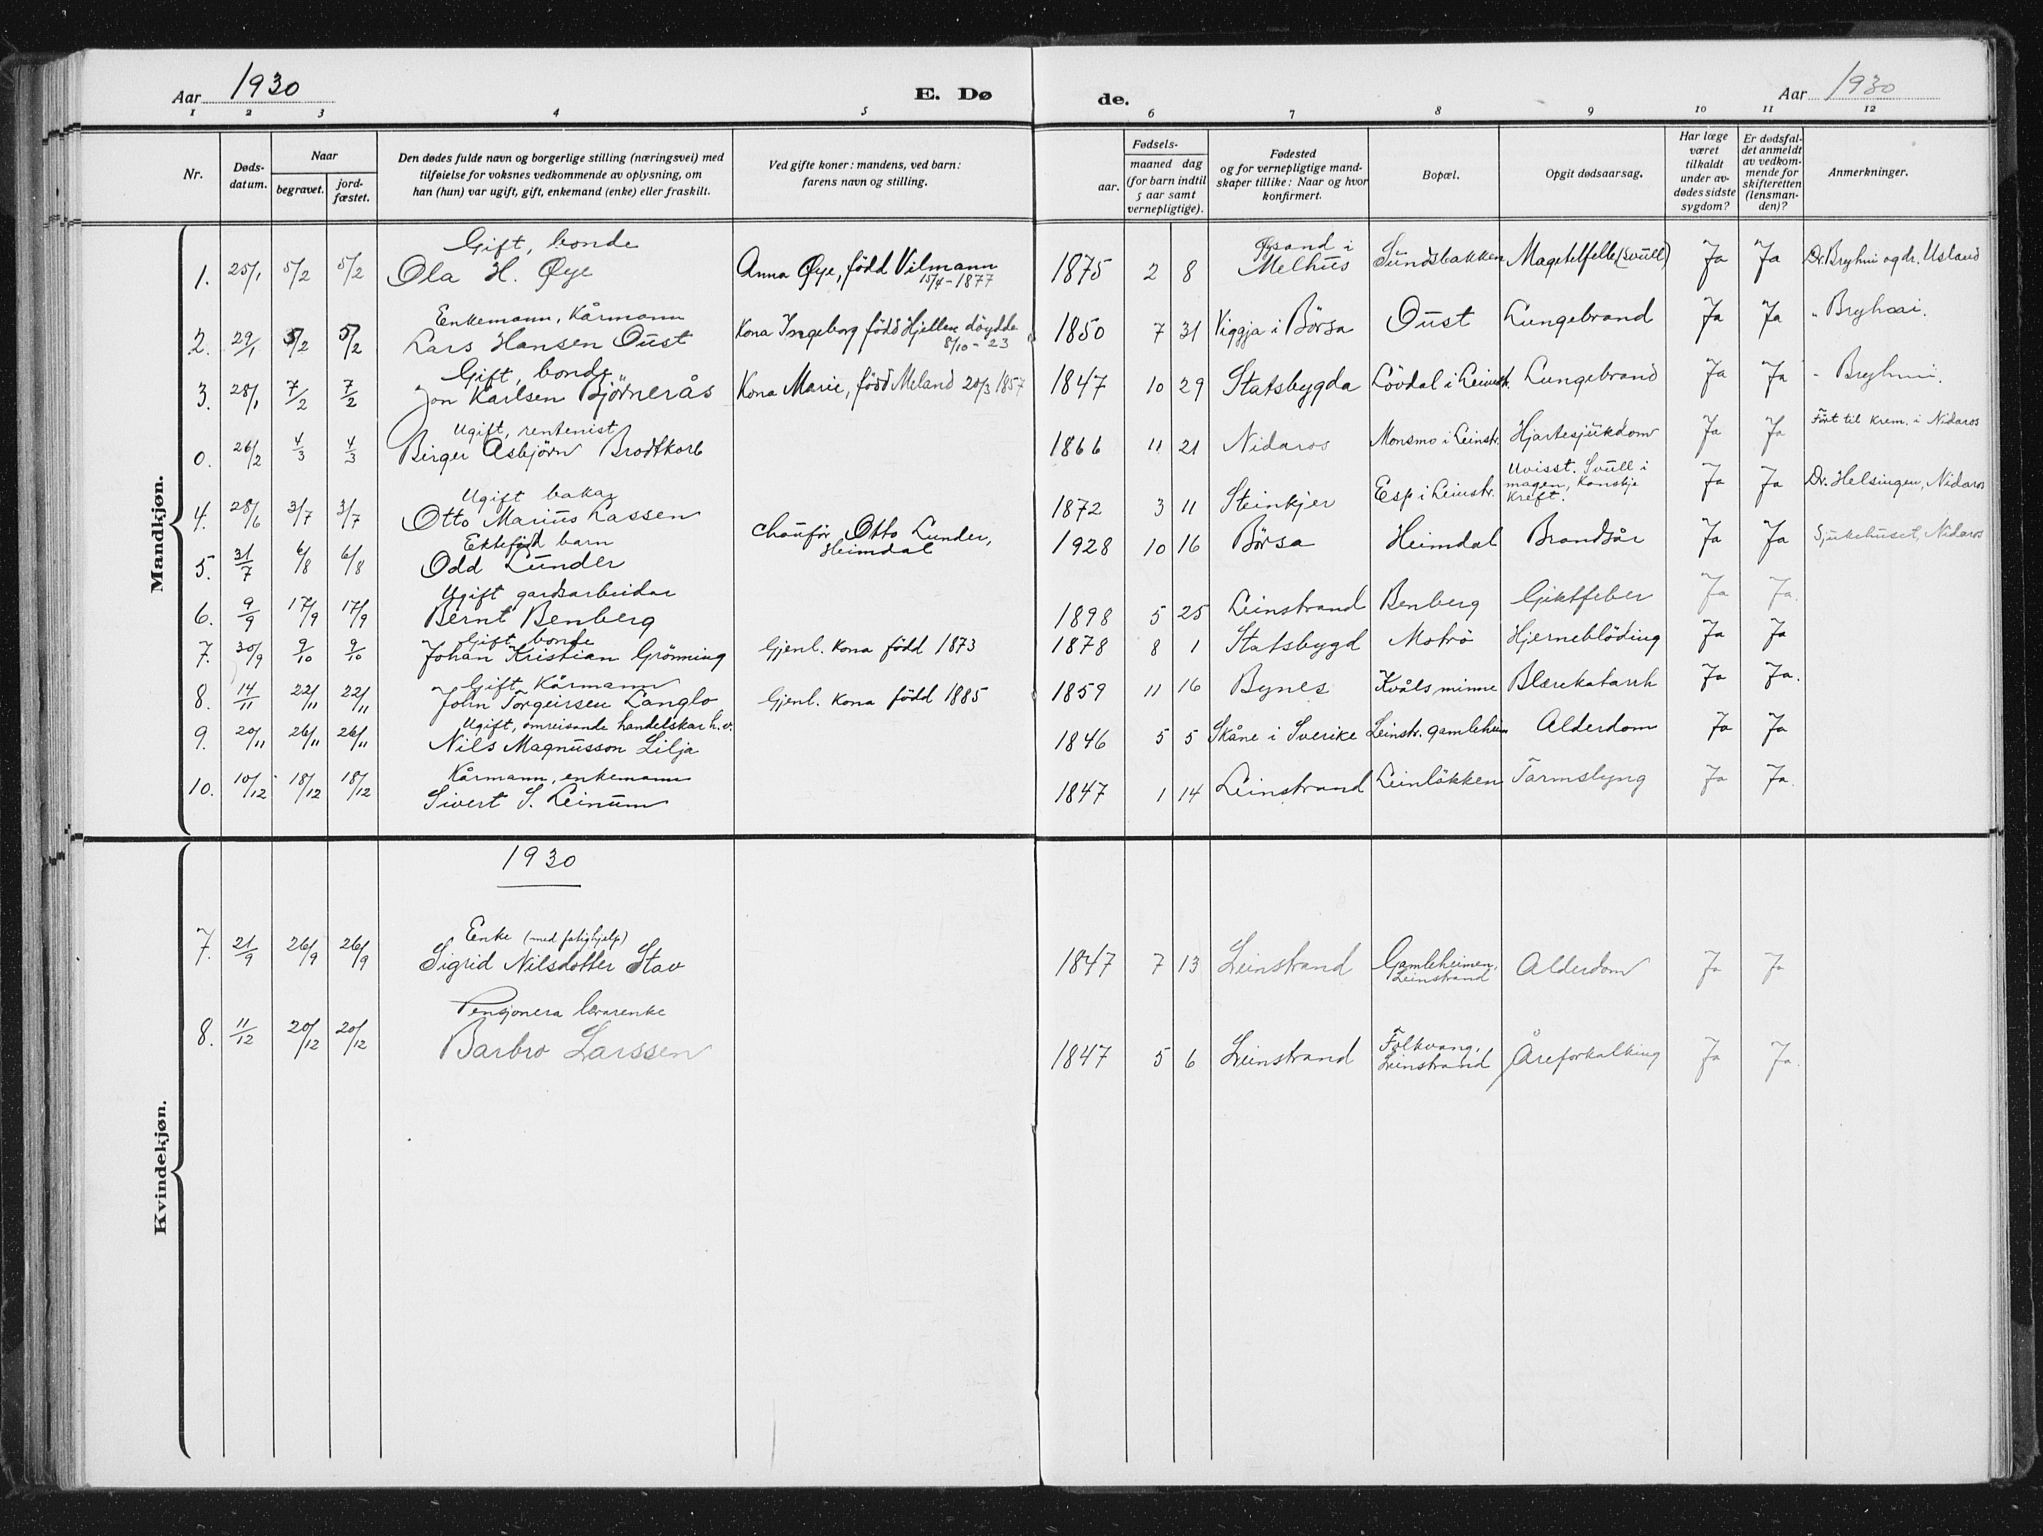 Aar 1930
E. Dø
de.
Aar 1930
1 2 3 4 5 6 7 8 9 10 11 12
Nr.
Døds-
datum.
Naar
begravet.
jord-
fæstet.
Den dødes fulde navn og borgerlige stilling (næringsvei) med
tilføielse for voksnes vedkommende av oplysning, om
han (hun) var ugift, gift, enkemand (enke) eller fraskilt.
Ved gifte koner: mandens, ved barn:
farens navn og stilling.
aar.
Fødsels-
maaned dag
(for barn indtil
5 aar samt
vernepligtige).
Fødested
og for vernepligtige mand-
skaper tillike: Naar og hvor
konfirmert.
Bopæl.
Opgit dødsaarsag.
Har læge
været
tilkaldt
under av-
dødes sidste
sygdom?
Er dødsfal-
det anmeldt
av vedkom-
mende for
skifteretten
(lensman-
den)?
Anmerkninger.
Mandkjøn.
Gift, bonde Øysand i
1. 25/1 5/2 5/2 Ola H. Øye Anna Øye, född Vilmann 1875 2 8 Melhus Sundsbakken Magetilfelle (svull) Ja Ja Dr. Bryhni og dr. Usland
15/4-1877
Enkemann, Kårmann
2. 29/1 5/2 5/2 Lars Hansen Oust Kona Ingeborg född Hjellen döydde 1850 7 31 Viggja i Börsa Oust Lungebrand Ja Ja " Bryhni.
8/10-23
Gift, bonde
3. 28/1 7/2 7/2 Jon Karlsen Björnerås Kona Marie, född Meland 20/3 1857 1847 10 29 Statsbygda Lövdal i Leinstr. Lungebrand Ja Ja " Bryhni.
Ugift, rentenist
0. 26/2 4/3 4/3 Birger Asbjörn Brodtkorb 1866 11 21 Nidaros Monsmo i Leinstr. Hjartesjukdom Ja Ja Fört til krem. i Nidaros
Ugift bakar Uvisst. Svull i
4. 28/6 3/7 3/7 Otto Marius Lassen 1872 3 11 Steinkjer Esp i Leinstr. magen, Kanskje Ja Ja Dr. Helsingen, Nidaros
kreft.
Ektefödd barn
5. 31/7 6/8 6/8 Odd Lunder Chauför Otto Lunder, 1928 10 16 Börsa Heimdal Brandsår Ja Ja Sjukehuset, Nidaros
Heimdal
Ugift gardsarbeidar
6. 9/9 17/9 17/9 Bernt Benberg 1898 5 25 Leinstrand Benberg Giktfeber Ja Ja.
Gift, bonde
7. 30/9 9/10 9/10 Johan Kristian Grönning Gjenl. kona född 1873 1878 8 1 Statsbygd Moträ Hjerneblöding Ja Ja
Gift, Kårmann
8. 14/11 22/11 22/11 John Torgeirsen Langlo Gjenl. kona född 1885 1859 11 16 Bynes Kvålsminne Blærekatarrh Ja Ja.
Ugift, omreisande handelskar h.v.
9. 20/11 26/11 26/11 Nils Magnusson Lilja 1846 5 5 Skåne i Sverike Leinstr. gamleheim Alderdom Ja Ja
Kårmann, enkemann
10. 10/12 18/12 18/12 Sivert S. Leinum 1847 1 14 Leinstrand Leinlökken Tarmslyng Ja Ja.
Kvindekjøn.
1930
Enke (med fatighjelp)
7. 21/9 26/9 26/9 Sigrid Nilsdotter Stav 1847 7 13 Leinstrand Gamleheimen, Alderdom Ja Ja
Leinstrand
Pensjonera lærarenke
8. 11/12 20/12 20/12 Barbro Larssen 1847 5 6 Leinstrand Folkvang, Åreforkalking Ja Ja.
Leinstrand